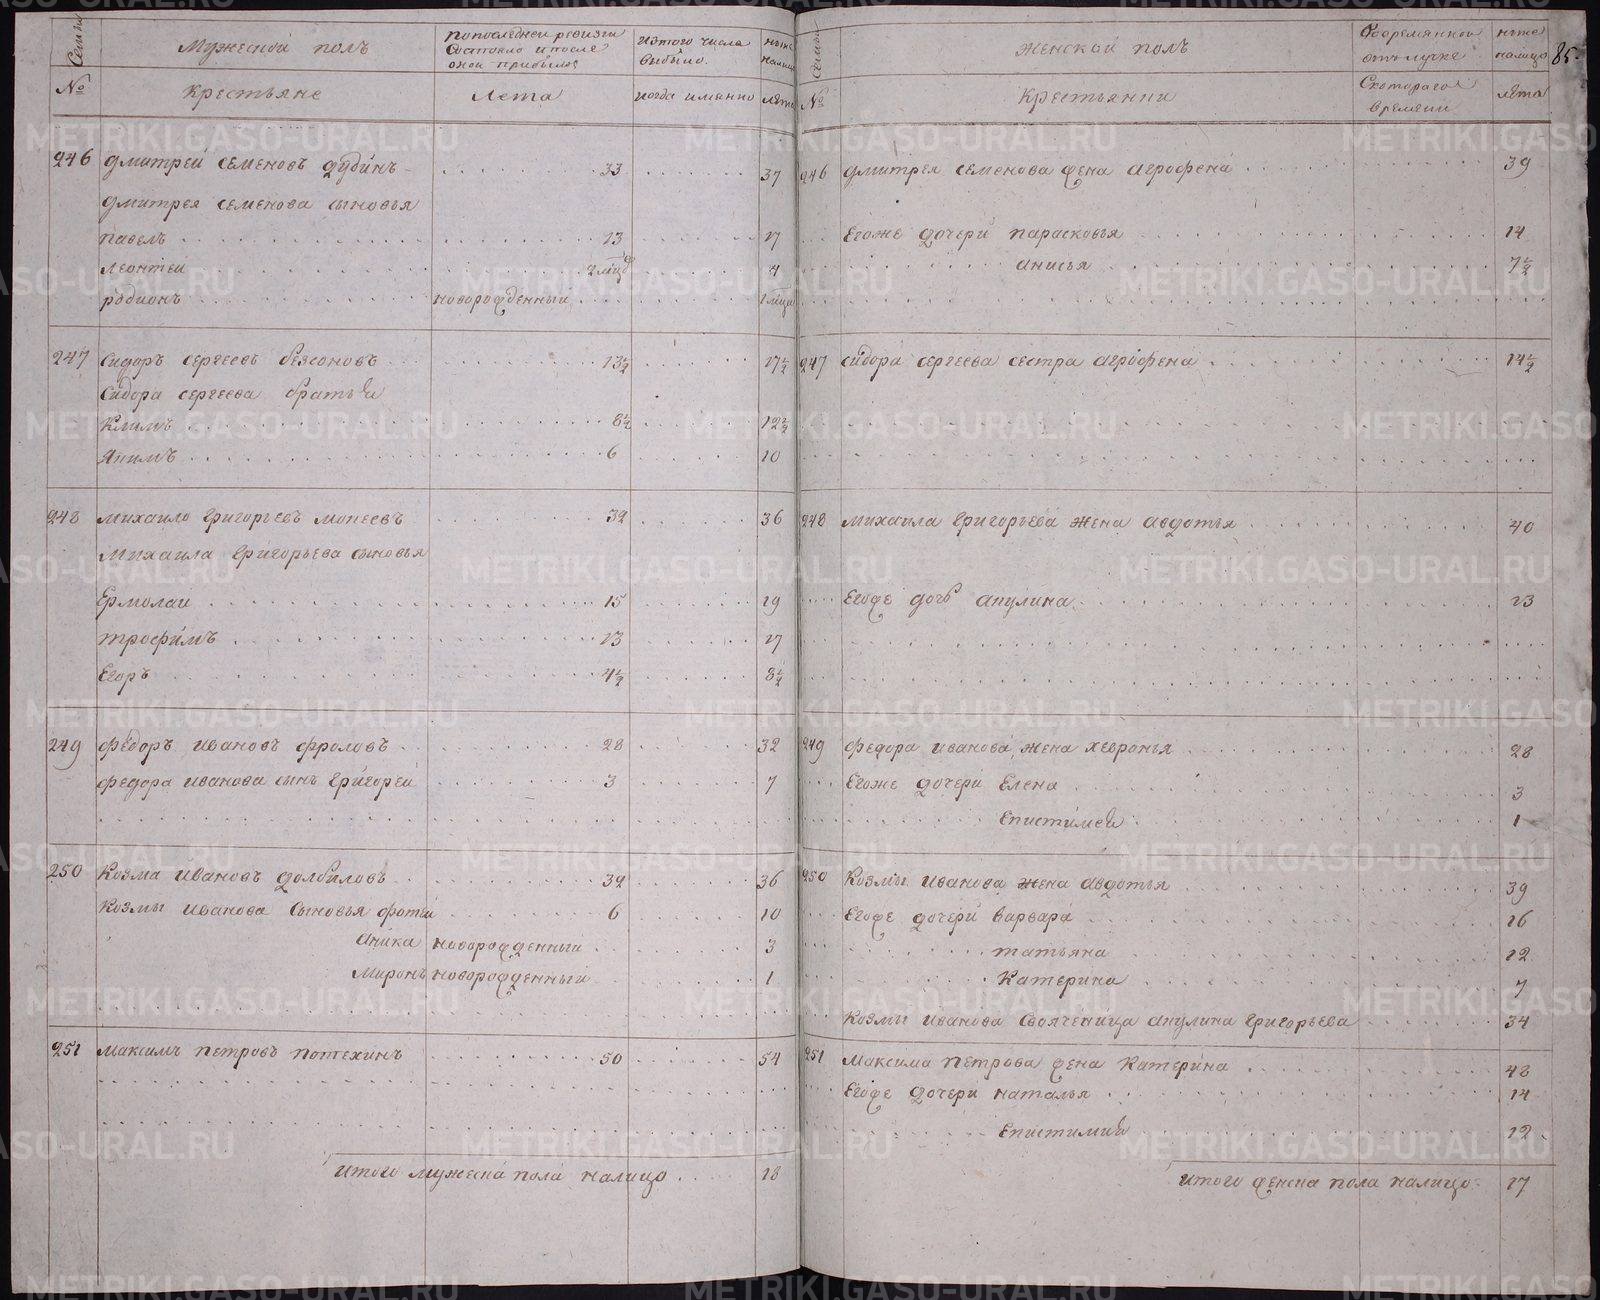 Семьи
Мужеской полъ
По последней ревизии
состояло и после
оной прибыло
Изтого числа
выбыло
ныне
налицо
№
Крестьяне
Лета
когда имянно
лета
246 Дмитрей Семеновъ Дубинъ 33 37
Дмитрея Семенова сыновья
Павелъ 13 17
Леонтей 2 мцд 4
Родионъ новорожденный 1 мцъ
247 Сидоръ Сергеевъ Безсоновъ 13½ 17½
Сидора Сергеева братья
Климъ 8½ 12½
Якимъ 6 10
248 Михаило Григорьевъ Мокеевъ 32 36
Михаила Григорьева сыновья
Ермолаи 15 19
Трофимъ 13 17
Егоръ 4½ 8½
249 Федоръ Ивановъ Фроловъ 28 32
Федора Иванова сынъ Григорей 3 7
250 Козма Ивановъ Долбиловъ 32 36
Козмы Иванова сыновья Фотей 6 10
Аника новорожденный 3
Миронъ новорожденный 1
251 Максимъ Петровъ Потехинъ 50 54
Итого мужеска пола налицо 18
Семьи
Женской полъ
Вовремянной
отлучке
ныне
налицо
85.
№
Крестьянки
Скотораго
времени
лета
246 Дмитрея Семенова жена Агрофена 39
Егоже дочери Парасковья 14
Анисья 7½
247 Сидора Сергеева сестра Агрофена 14½
248 Михаила Григорьева жена Авдотья 40
Егоже дочь Акулина 13
249 Федора Иванова жена Хевронья 28
Егоже дочери Елена 3
Епистимея 1
250 Козмы Иванова жена Авдотья 39
Егоже дочери Варвара 16
Татьяна 12
Катерина 7
Козмы Иванова свояченица Акулина Григорьева 34
251 Максима Петрова жена Катерина 48
Егоже дочери Наталья 14
Епистимия 12
Итого женска пола налицо 17
METRIKI.GASO-URAL.RU